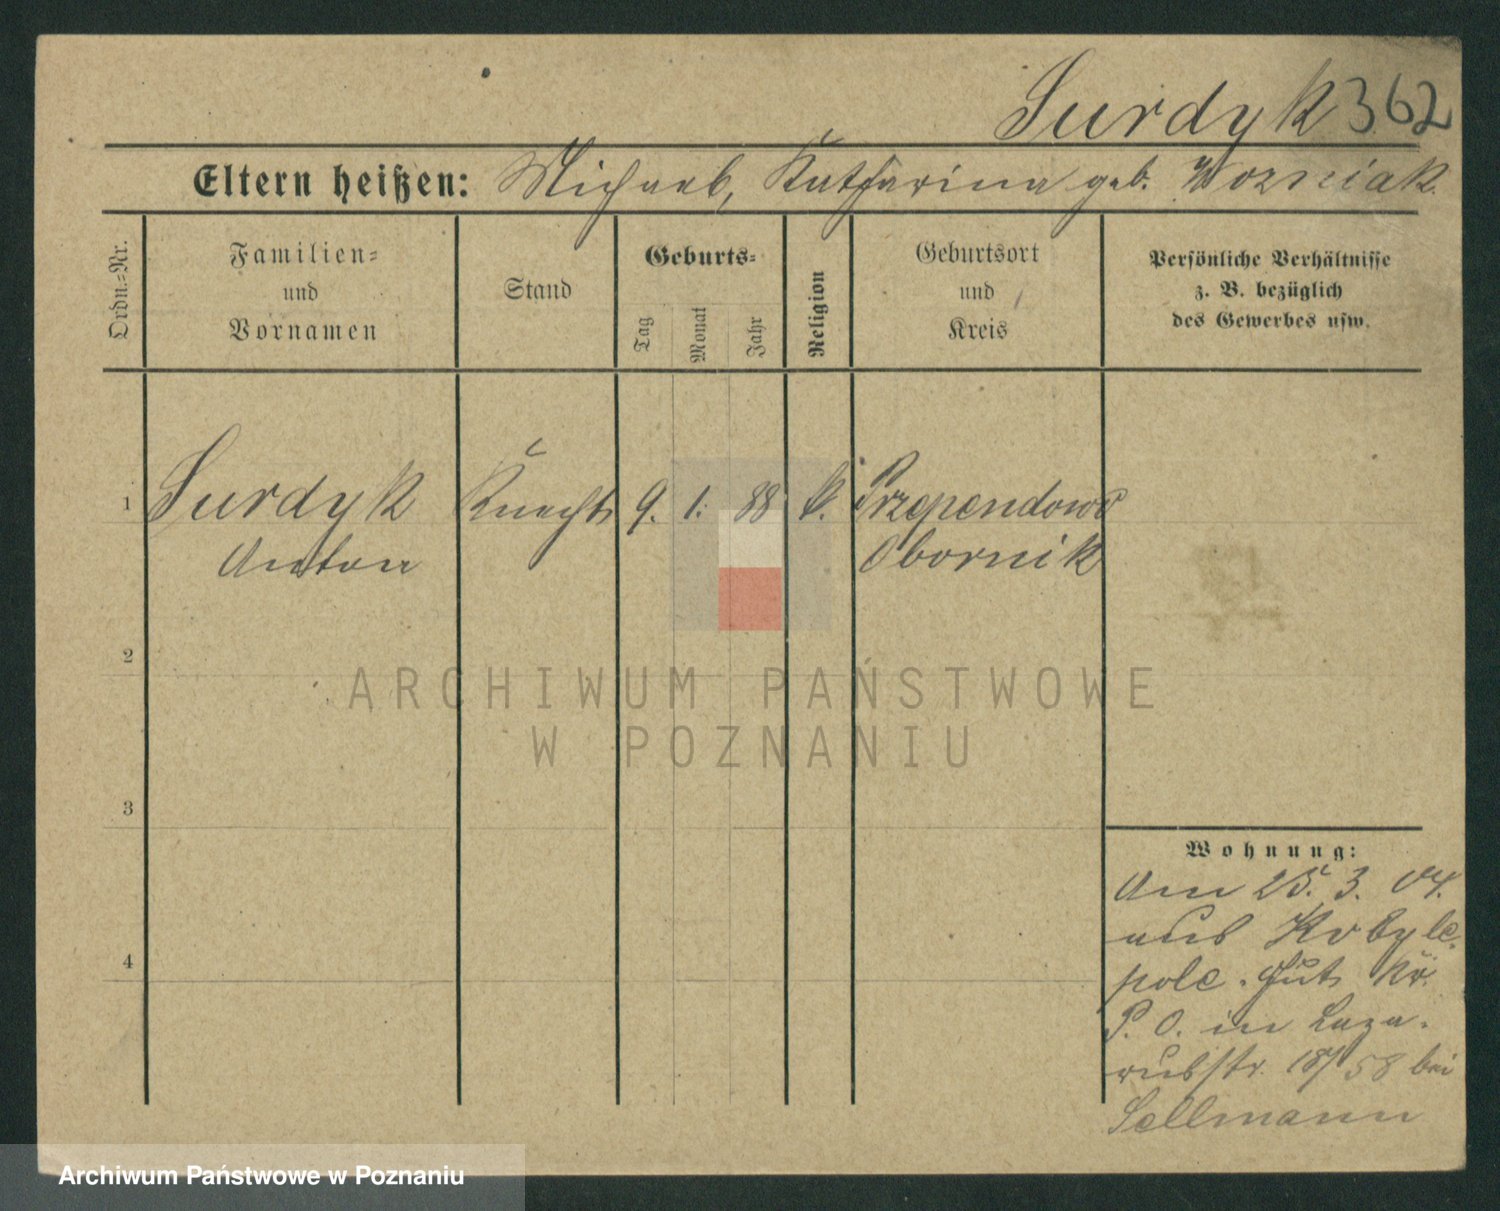 Surdyk 362
Eltern heißen: Michael, Katharina geb. Wozniak
Ordn.-Nr.
Familien-
und
Vornamen
Stand
Geburts-
Tag
Monat
Jahr
Religion
Geburtsort
und
Kreis
Persönliche Verhältnisse
z. B. bezüglich
des Gewerbes usw.
1 Surdyk Knecht 9. 1. 88 k. Przependowo
Anton Obornik
2
3
4
Wohnung:
Am 25. 3. 04.
aus Kobyle-
pole. Gut Kr.
P. O. in Laza-
russtr. 18/58 bei
Sellmann
ARCHIWUM PAŃSTWOWE
W POZNANIU
Archiwum Państwowe w Poznaniu